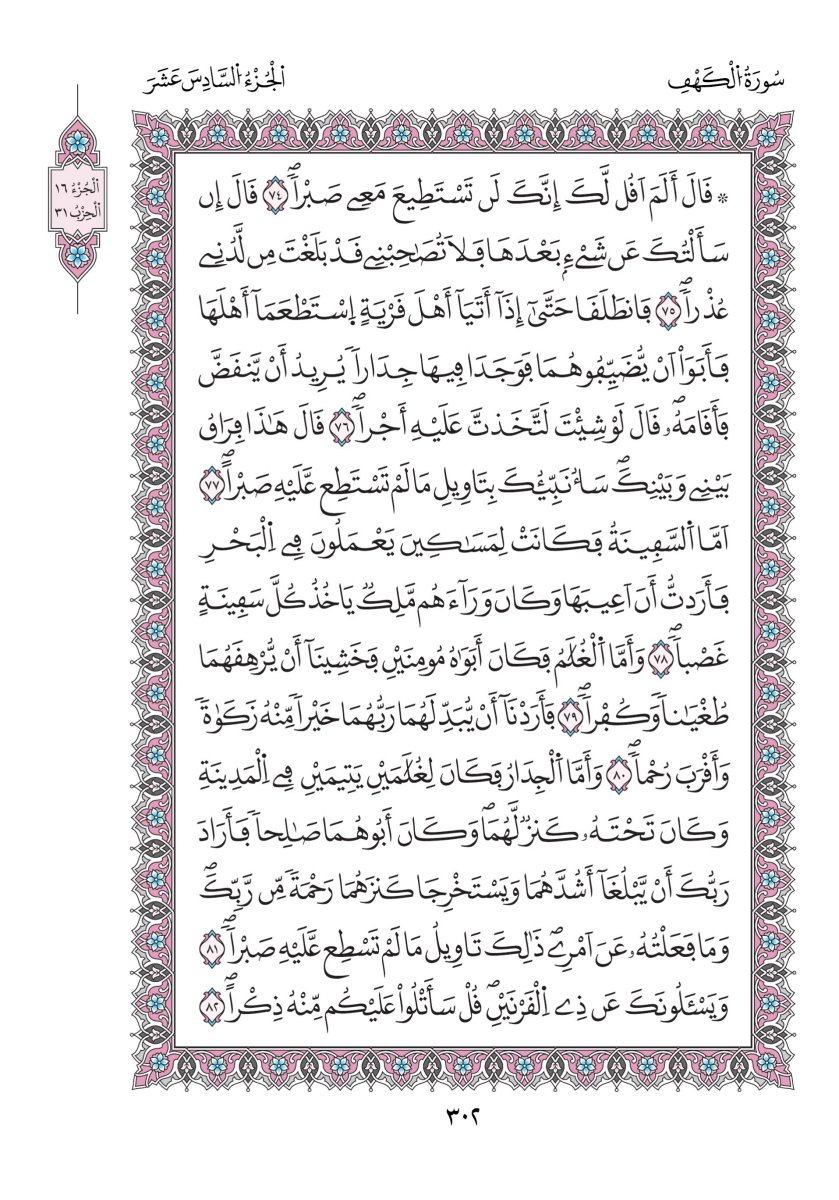 سُورَةُ الْكَهْفِ
الْجُزْءُ السَّادِسَ عَشَرَ
الْجُزْءُ ١٦
الْحِزْبُ ٣١
۞ قَالَ أَلَمَ اَقُل لَّكَ إِنَّكَ لَن تَسْتَطِيعَ مَعِے صَبْراٗۖ ٧٤ قَالَ إِن
سَأَلْتُكَ عَن شَےْءِۢ بَعْدَهَا فَلَا تُصَٰحِبْنِے قَدْ بَلَغْتَ مِن لَّدُنِے
عُذْراٗۖ ٧٥ فَانطَلَقَا حَتَّىٰٓ إِذَآ أَتَيَآ أَهْلَ قَرْيَةٍ اِسْتَطْعَمَآ أَهْلَهَا
فَأَبَوَاْ اَنْ يُّضَيِّفُوهُمَا فَوَجَدَا فِيهَا جِدَاراٗ يُرِيدُ أَنْ يَّنقَضَّ
فَأَقَامَهُۥۖ قَالَ لَوْ شِئْتَ لَتَّخَذتَّ عَلَيْهِ أَجْراٗۖ ٧٦ قَالَ هَٰذَا فِرَاقُ
بَيْنِے وَبَيْنِكَۖ سَأُنَبِّئُكَ بِتَاوِيلِ مَا لَمْ تَسْتَطِع عَّلَيْهِ صَبْراًۖ ٧٧
اَمَّا اَ۬لسَّفِينَةُ فَكَانَتْ لِمَسَٰكِينَ يَعْمَلُونَ فِے اِ۬لْبَحْرِ
فَأَرَدتُّ أَنَ اَعِيبَهَا وَكَانَ وَرَآءَهُم مَّلِكٞ يَاخُذُ كُلَّ سَفِينَةٍ
غَصْباٗۖ ٧٨ وَأَمَّا اَ۬لْغُلَٰمُ فَكَانَ أَبَوَٰهُ مُومِنَيْنِ فَخَشِينَآ أَنْ يُّرْهِقَهُمَا
طُغْيَٰناٗ وَكُفْراٗۖ ٧٩ فَأَرَدْنَآ أَنْ يُّبَدِّلَهُمَا رَبُّهُمَا خَيْراٗ مِّنْهُ زَكَوٰةٗ
وَأَقْرَبَ رُحْماٗۖ ٨٠ وَأَمَّا اَ۬لْجِدَارُ فَكَانَ لِغُلَٰمَيْنِ يَتِيمَيْنِ فِے اِ۬لْمَدِينَةِ
وَكَانَ تَحْتَهُۥ كَنزٞ لَّهُمَاۖ وَكَانَ أَبُوهُمَا صَٰلِحاٗ فَأَرَادَ
رَبُّكَ أَنْ يَّبْلُغَآ أَشُدَّهُمَا وَيَسْتَخْرِجَا كَنزَهُمَا رَحْمَةٗ مِّن رَّبِّكَۖ
وَمَا فَعَلْتُهُۥ عَنَ اَمْرِےۖ ذَٰلِكَ تَاوِيلُ مَا لَمْ تَسْطِع عَّلَيْهِ صَبْراٗۖ ٨١
وَيَسْـَٔلُونَكَ عَن ذِے اِ۬لْقَرْنَيْنِۖ قُلْ سَأَتْلُواْ عَلَيْكُم مِّنْهُ ذِكْراًۖ ٨٢
٣٠٢